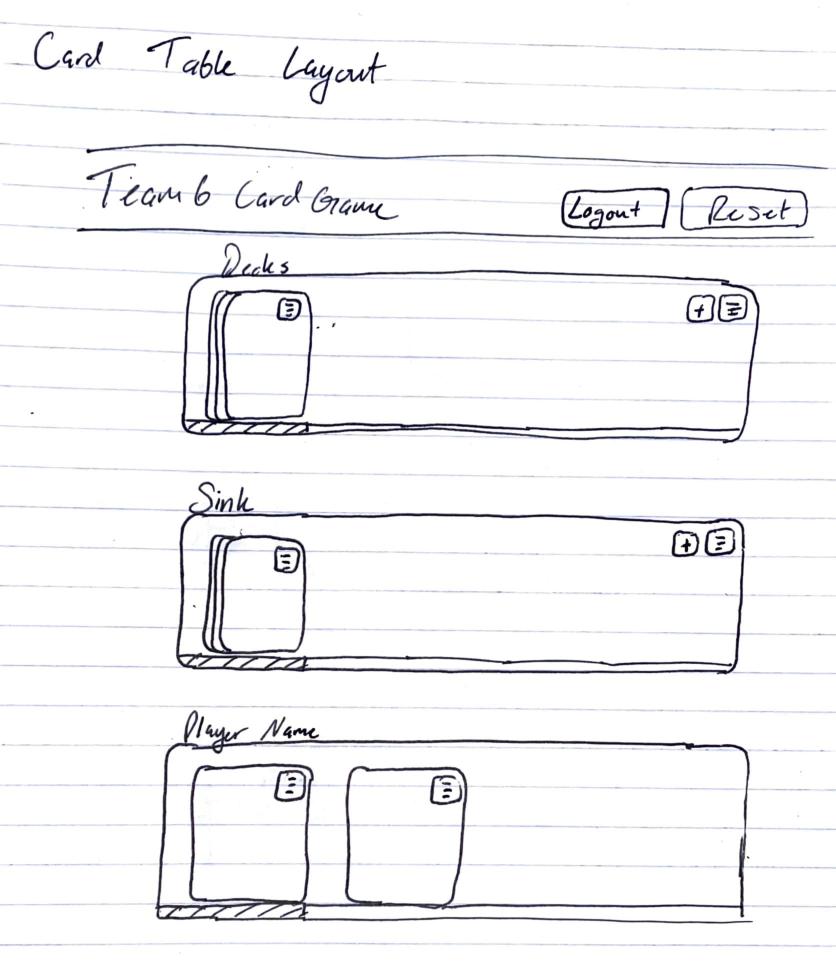 Card Table Layout
Team 6 Card Game Logout Reset
Decks
+
Sink
+
Player Name